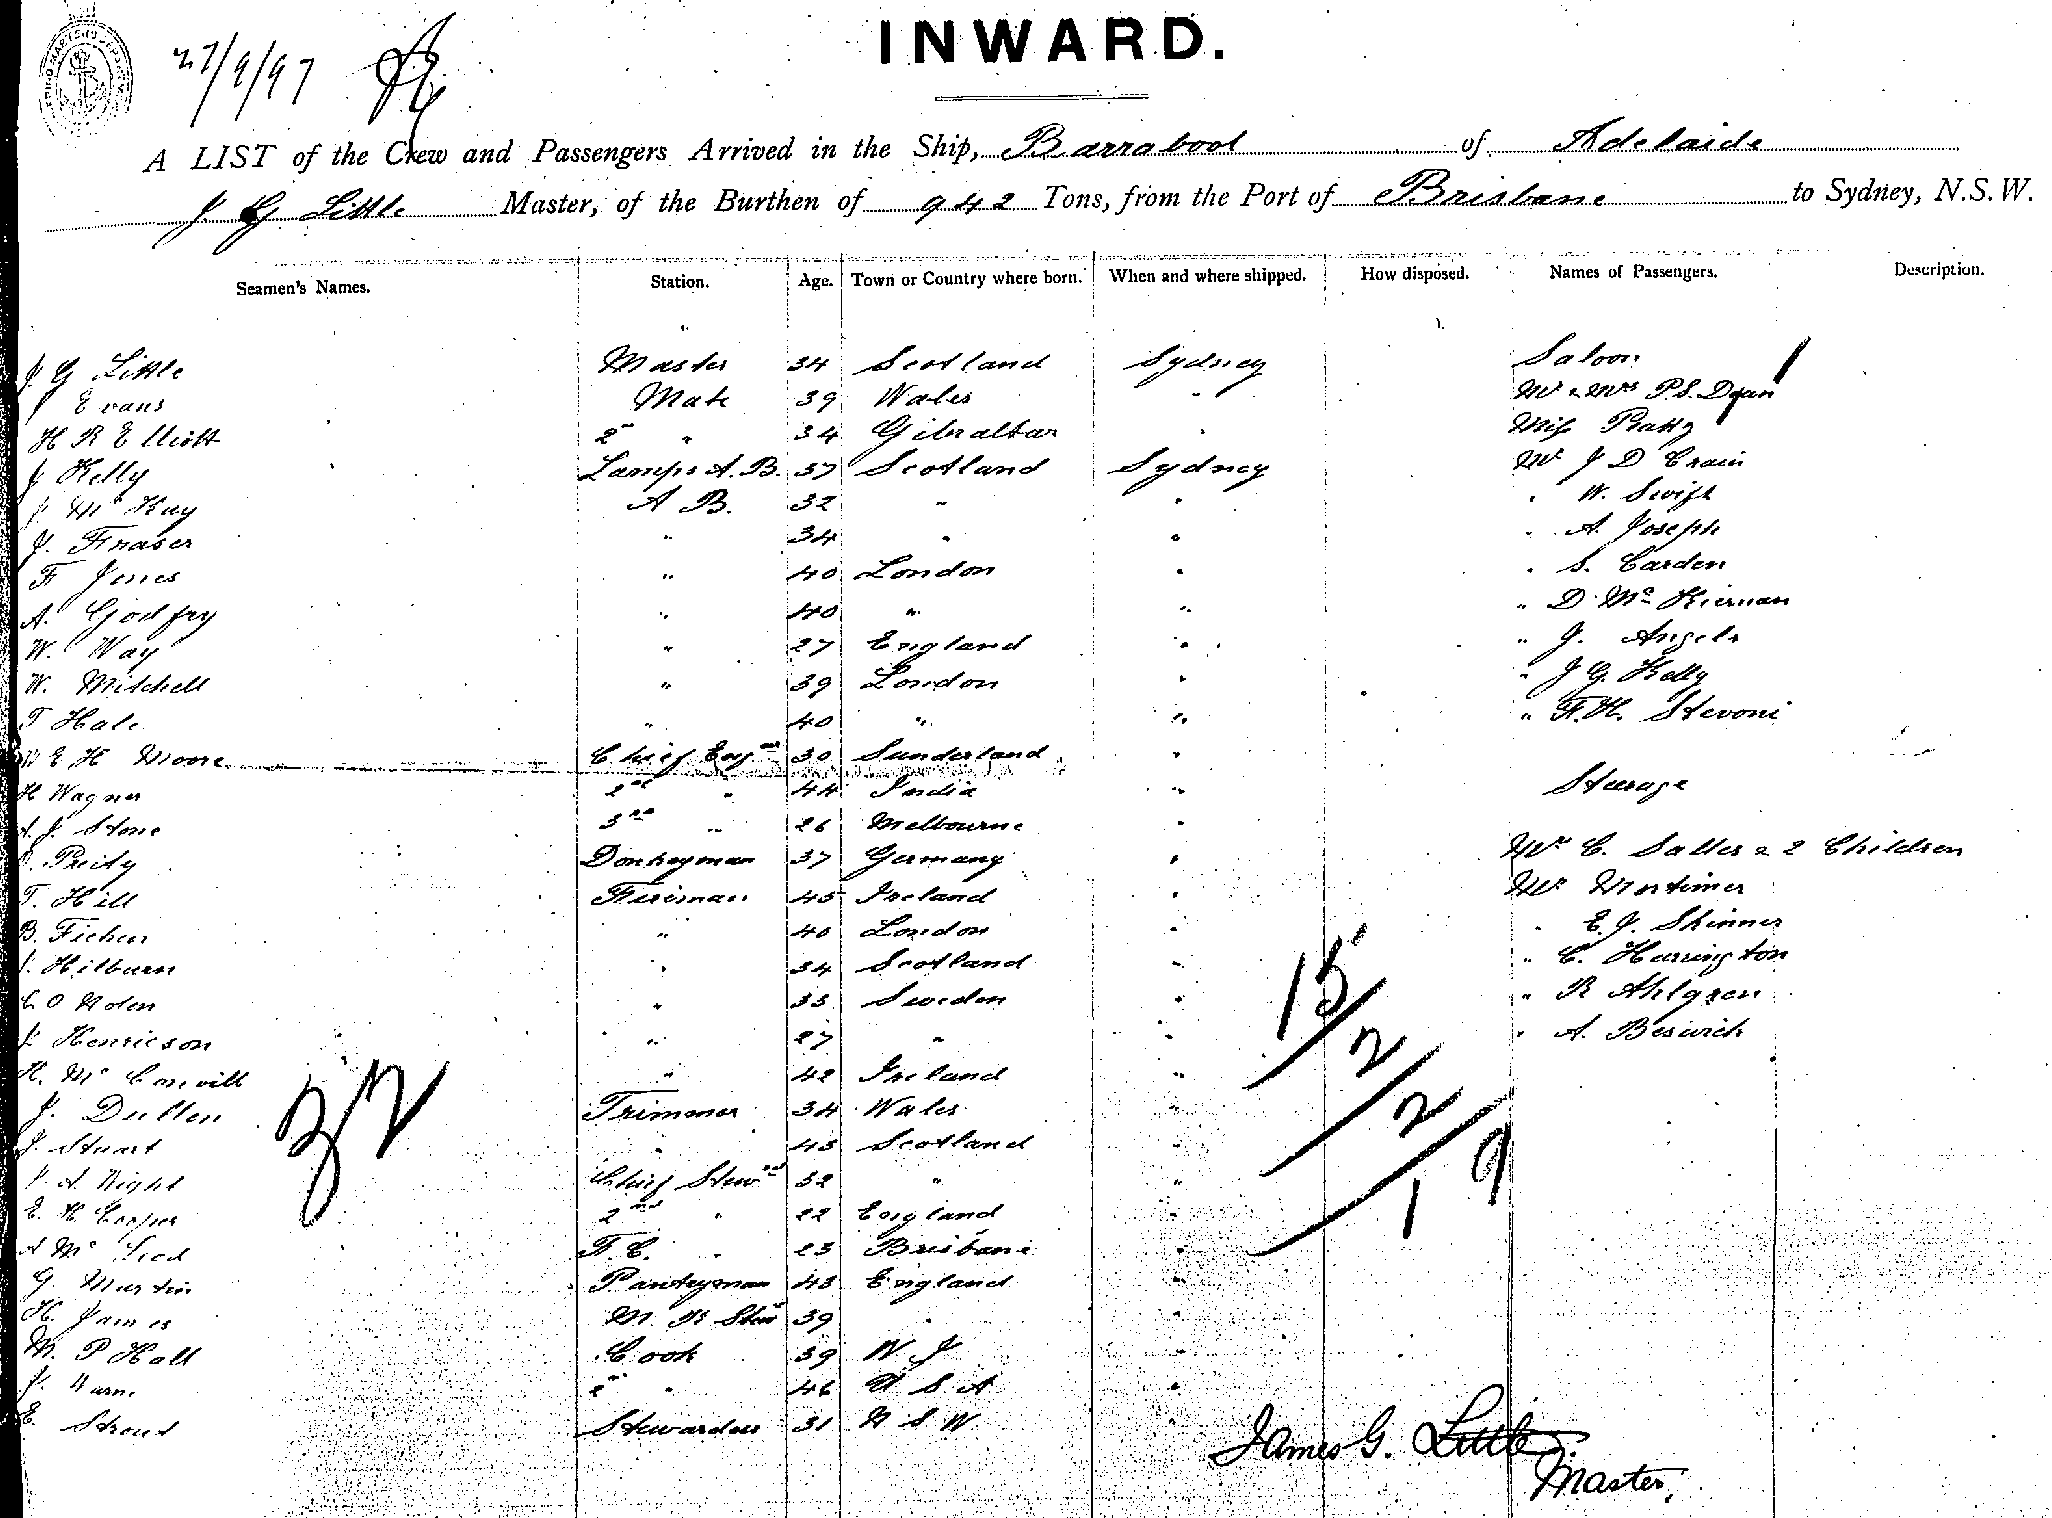 27/9/97
INWARD.
A LIST of the Crew and Passengers Arrived in the Ship, Barrabool of Adelaide
J G Little Master, of the Burthen of 942 Tons, from the Port of Brisbane to Sydney, N.S.W.
Seamen's Names. Station. Age. Town or Country where born. When and where shipped. How disposed. Names of Passengers. Description.
J G Little Master 34 Scotland Sydney Saloon
J Evans Mate 39 Wales " Mr & Mrs P.S. Dean
H R Elliott 2nd " 34 Gibraltar " Miss
J Kelly Lamps A.B. 37 Scotland Sydney Mr J D Crain
J. Mc Kay A B. 32 " " " W. Swift
J. Fraser " 34 " " " A. Joseph
F Jones " 40 London " " S. Carden
A. Godfry " 40 " " " D. Mc Kiernan
W. Way " 27 England " " J. Angels
W. Mitchell " 39 London " " J G. Kelly
T Hale " 40 " " " F. H. Stevoni
E H Moore Chief Engr 30 Sunderland "
H Wagner 2nd " 44 India " Steerage
A. J. Stone 3rd " 26 Melbourne "
Preity Donkeyman 37 Germany " C. Salter & 2 Children
T. Hill Fireman 45 Ireland " Mr Mortimer
B. Ficken " 40 London " " E. J. Skinner
J. Hilburn " 34 Scotland " " C. Harrington
C O Noden " 33 Sweden " " R Ahlgren
J. Henricson " 27 " " " A. Beswick
H. Mc Convill " 42 Ireland "
J. Dullen Trimmer 34 Wales "
J. Stuart " 43 Scotland "
J. A. Right Chief Stewd 32 " "
E. H Cooper 2nd " 22 England "
A Mc Leod F. C. " 23 Brisbane "
G. Martin Pantryman 43 England "
H. James M. R Stew 39 " "
M. P Hall Cook 39 W J "
J. 2nd " 46 U S A "
E. Stroud Stewardess 31 N S W "
32
15
2
2
1 9
James G. Little
Master.